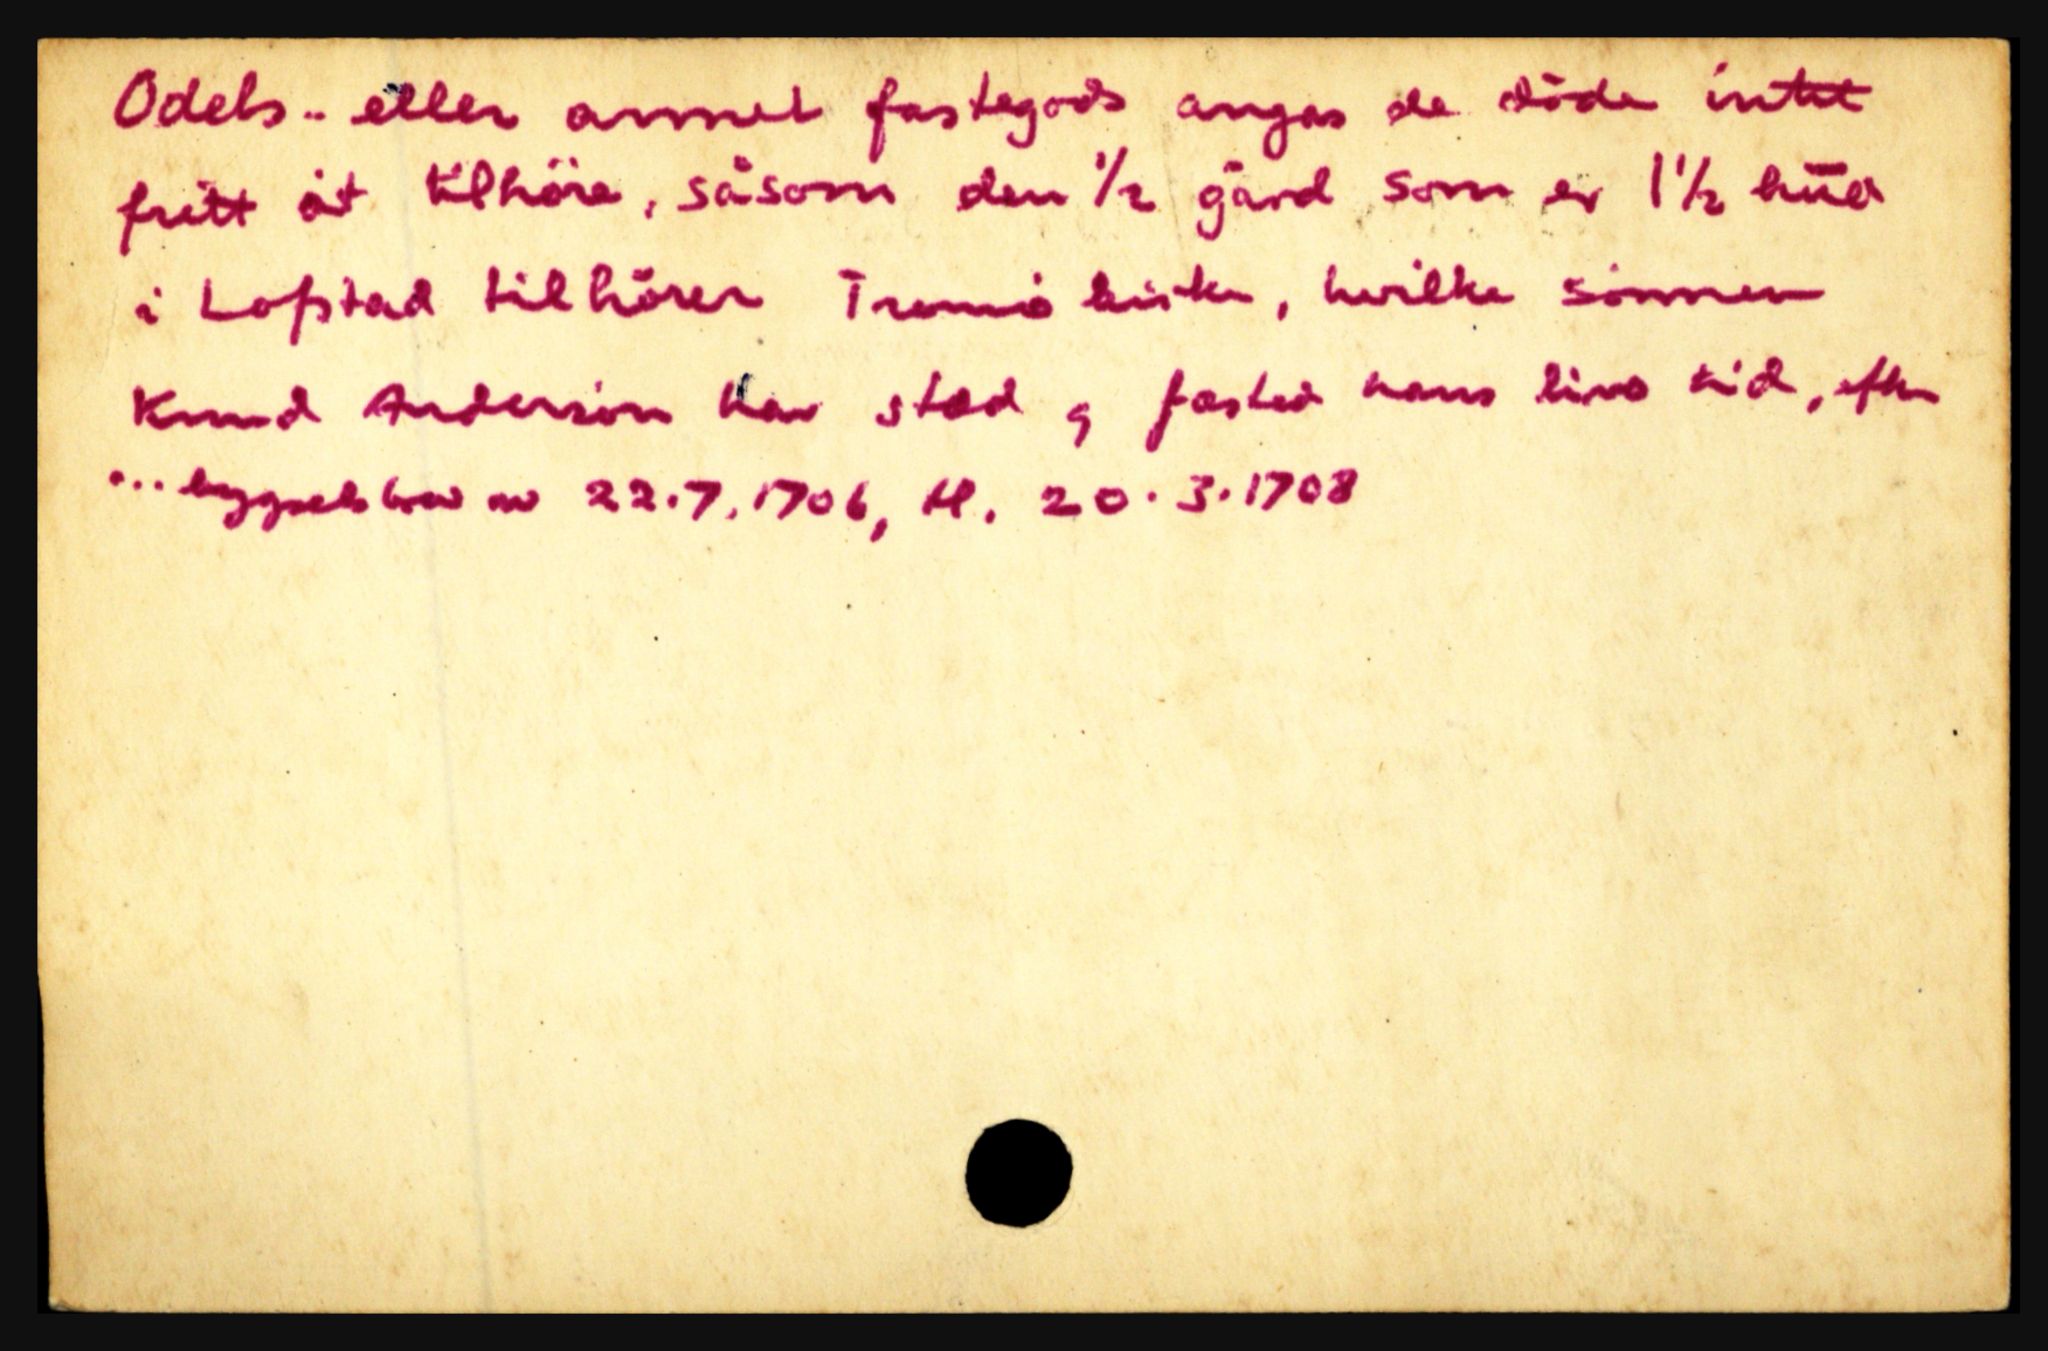 Odels.. eller annet fastegods angas de döde intet
fritt åt tilhöre, såsom den 1/2 gård som er 1 1/2 hüd
i Lofstad tilhörer Tromö kirke, hvilke sönnen
Knud Anderson hav sted og fæsted hans livs tid, efter
... bygselsbrev av 22.7.1706, tl. 20.3.1708